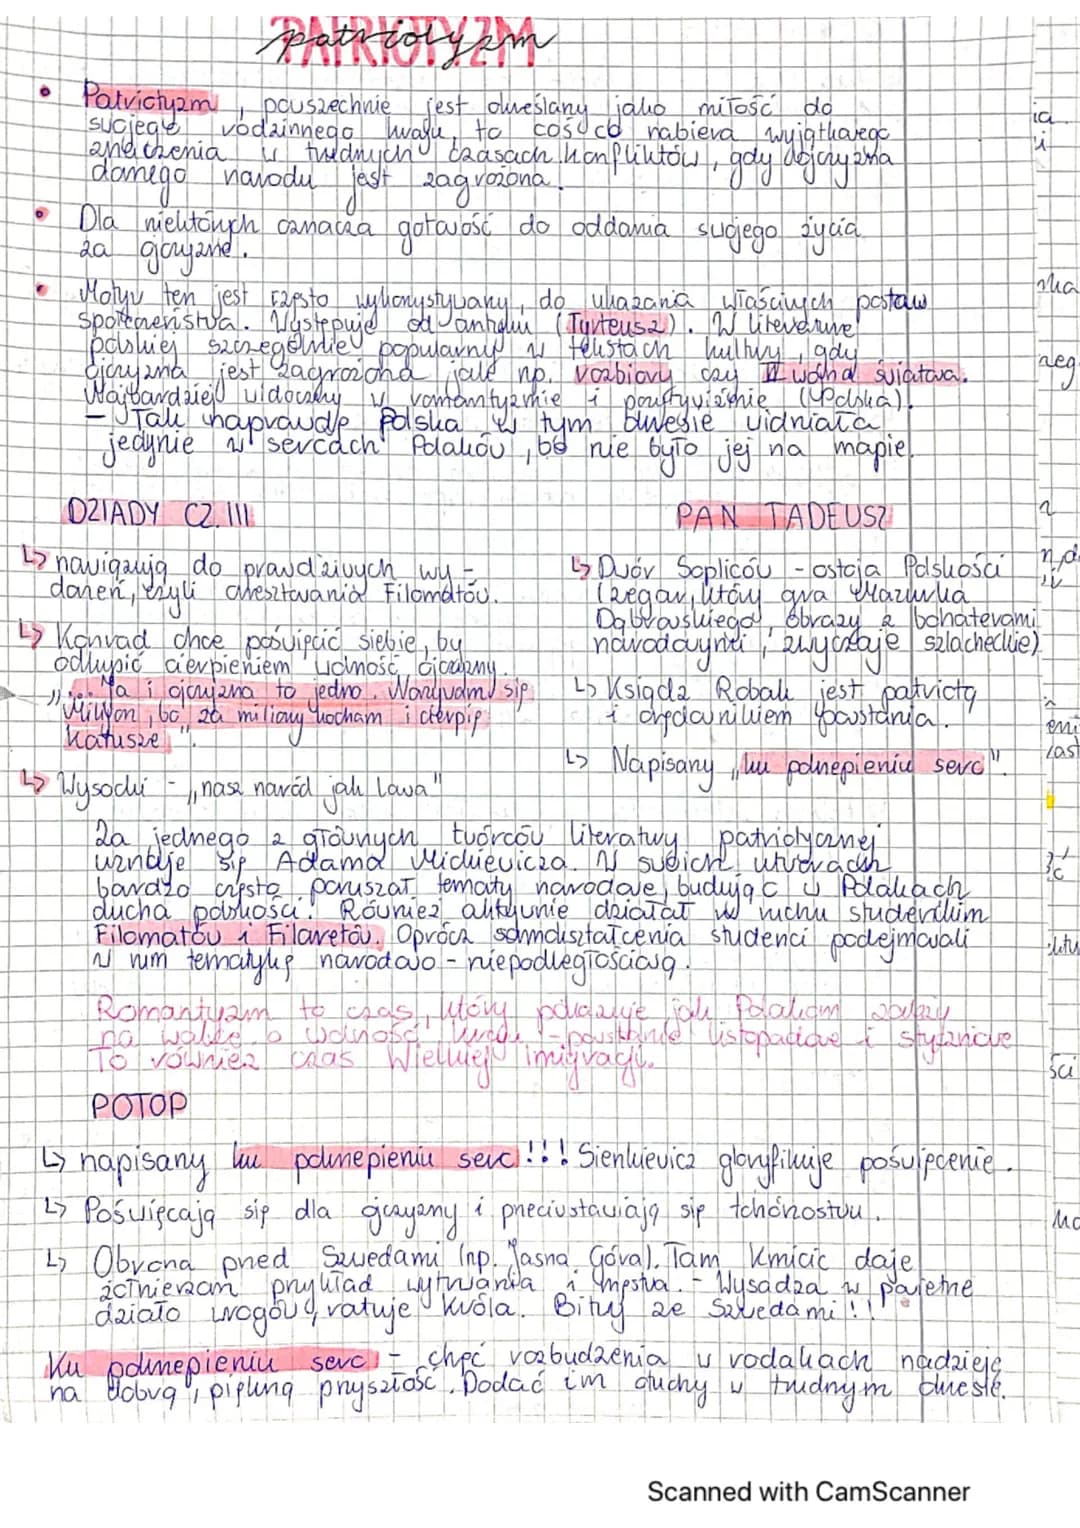 PATRIOTYZM
patriotyzm
Patriotyzm, powszechnie jest określany jako miłość do
swojego rodzinnego kraju, to coś co nabiera wyjątkowego
znaczenia w trudnych czasach konfliktów, gdy ojczyzna
danego narodu jest zagrożona.
Dla niektórych oznacza gotowość do oddania swojego życia
za ojczyznę.
Motyw ten jest często wykorzystywany, do ukazania właściwych postaw
społeczeństwa. Występuje od antyku (Tyrteusz). W literaturze
polskiej szczególnie popularny w tekstach kultury, gdy
ojczyzna jest zagrożona jak np. rozbiory czy II wojna światowa.
Najbardziej widoczny w romantyzmie i pozytywizmie (Polska).
- Tak naprawdę Polska w tym okresie widniała
jedynie w sercach Polaków, bo nie było jej na mapie.
DZIADY CZ. III
↳ nawiązują do prawdziwych wy-
darzeń, czyli aresztowania Filomatów.
↳ Konrad chce poświęcić siebie, by
odkupić cierpieniem wolność ojczyzny
"... Ja i ojczyzna to jedno. Nazywam się
Milijon, bo za miliony kocham i cierpię
katusze".
↳ Wysocki - "nasz naród jak lawa"
PAN TADEUSZ
↳ Dwór Sopliców - ostoja Polskości
(zegar, który gra Mazurka
Dąbrowskiego, obrazy z bohaterami
narodowymi, zwyczaje szlacheckie)
↳ Ksiądz Robak jest patriotą
i orędownikiem powstania.
↳ Napisany "ku pokrzepieniu serc".
Za jednego z głównych twórców literatury patriotycznej
uznaje się Adama Mickiewicza. W swoich utworach
bardzo często poruszał tematy narodowe, budując w Polakach
ducha polskości. Również aktywnie działał w ruchu studenckim
Filomatów i Filaretów. Oprócz samokształcenia studenci podejmowali
w nim tematykę narodowo - niepodległościową.
Romantyzm to czas, który pokazuje jak Polakom zależy
na walce o wolność kraju - powstanie listopadowe i styczniowe
To również czas Wielkiej imigracji.
POTOP
↳ napisany ku pokrzepieniu serc!!! Sienkiewicz gloryfikuje poświęcenie.
↳ Poświęcają się dla ojczyzny i przeciwstawiają się tchórzostwu.
↳ Obrona przed Szwedami (np. Jasna Góra). Tam Kmicic daje
żołnierzom przykład wytrwania i męstwa. - Wysadza w powietrze
działo wrogów, ratuje króla. Bitwy ze Szwedami!!
Ku pokrzepieniu serc - chęć rozbudzenia w rodakach nadzieję
na dobrą, piękną przyszłość. Dodać im otuchy w trudnym okresie.
Scanned with CamScanner